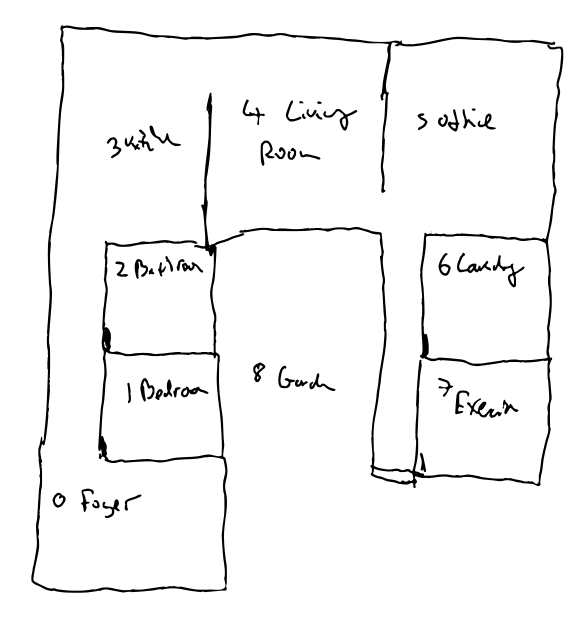 4 Living
Room
5 office
3
2 Bathroom
6 Laundry
1 Bedroom
8 Garden
7
Exercise
0 Foyer